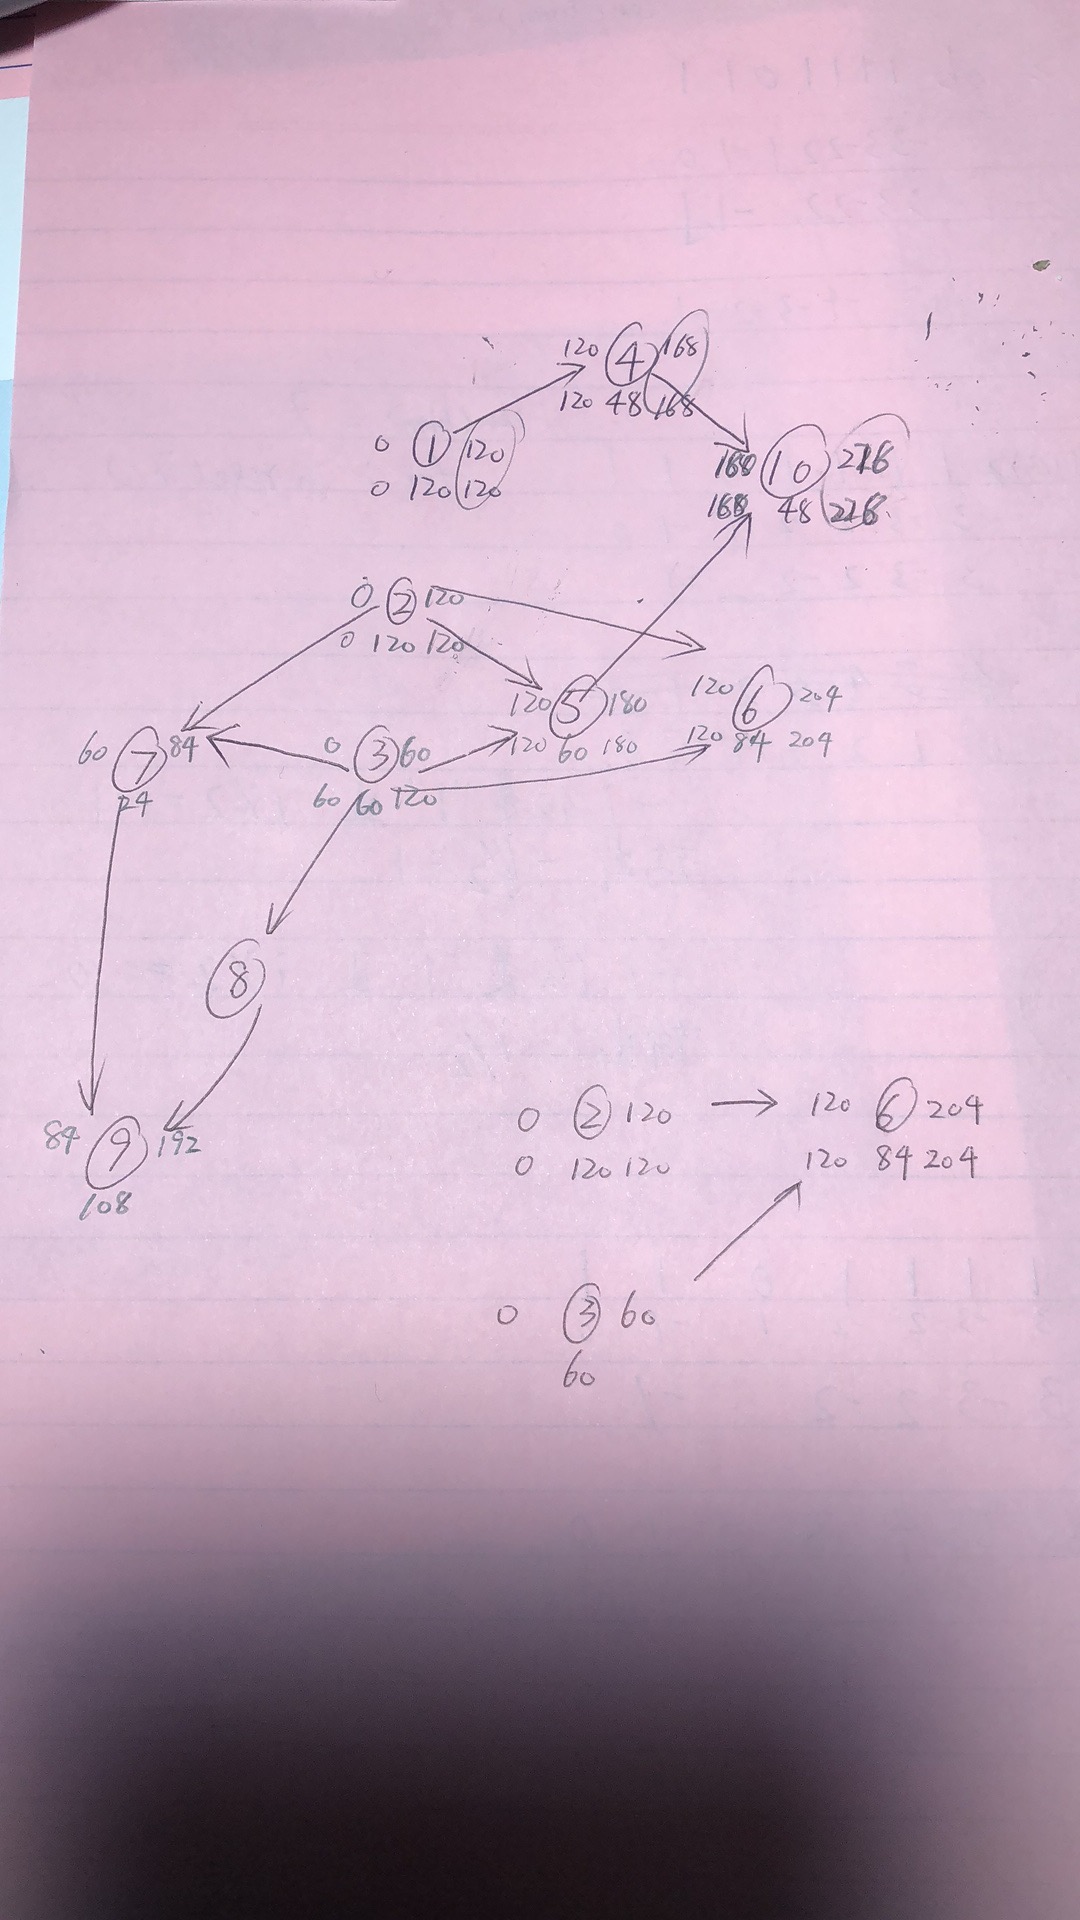 120 4 168
120 48 168
0 1 120
0 120 120
10
48
0 2 120
0 120 120
120 5 180
120 60 180
120 6 204
120 84 204
60 7 84
24
0 3 60
60 60 120
8
84 9 192
108
0 2 120
0 120 120
120 6 204
120 84 204
0 3 60
60